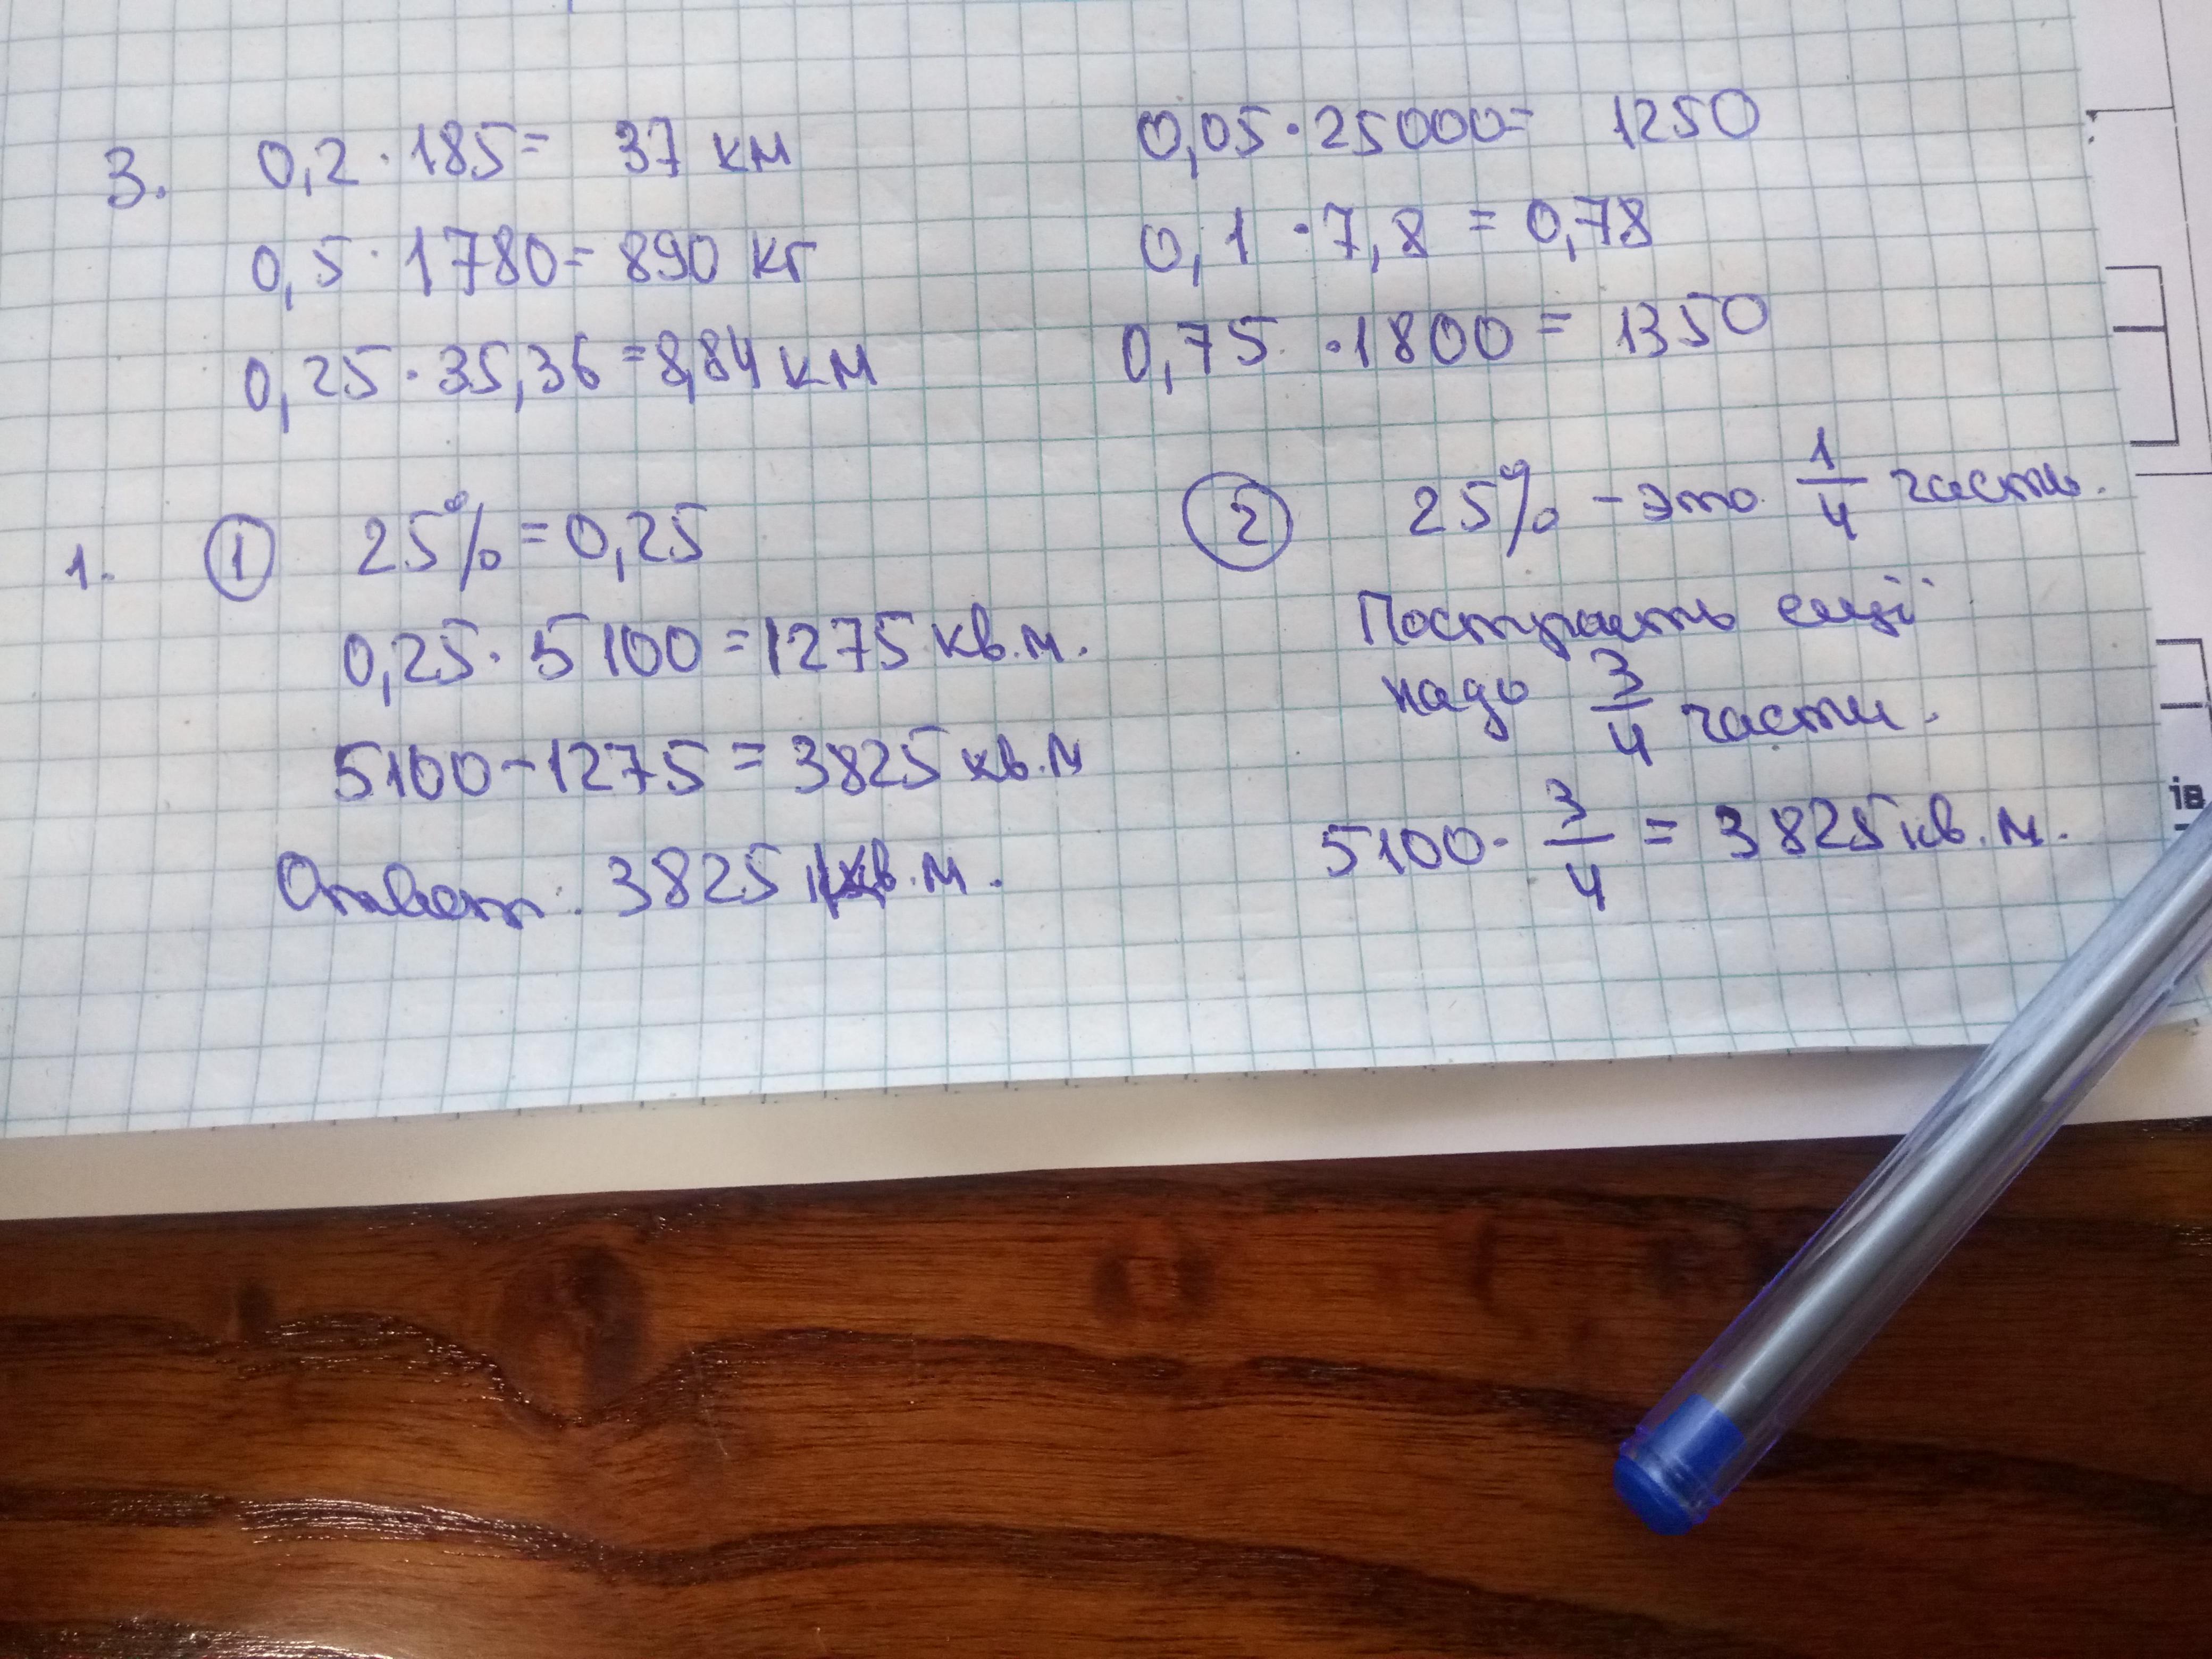 3. 0,2 · 185 = 37 км
0,5 · 1780 = 890 кг
0,25 · 35,36 = 8,84 км
0,05 · 25000 = 1250
0,1 · 7,8 = 0,78
0,75 · 1800 = 1350
1. ① 25% = 0,25
0,25 · 5100 = 1275 кв.м.
5100 - 1275 = 3825 кв.м
Ответ: 3825 кв.м.
② 25% - это 1/4 часть.
надо 3/4 части.
5100 · 3/4 = 3825 кв.м.
ів